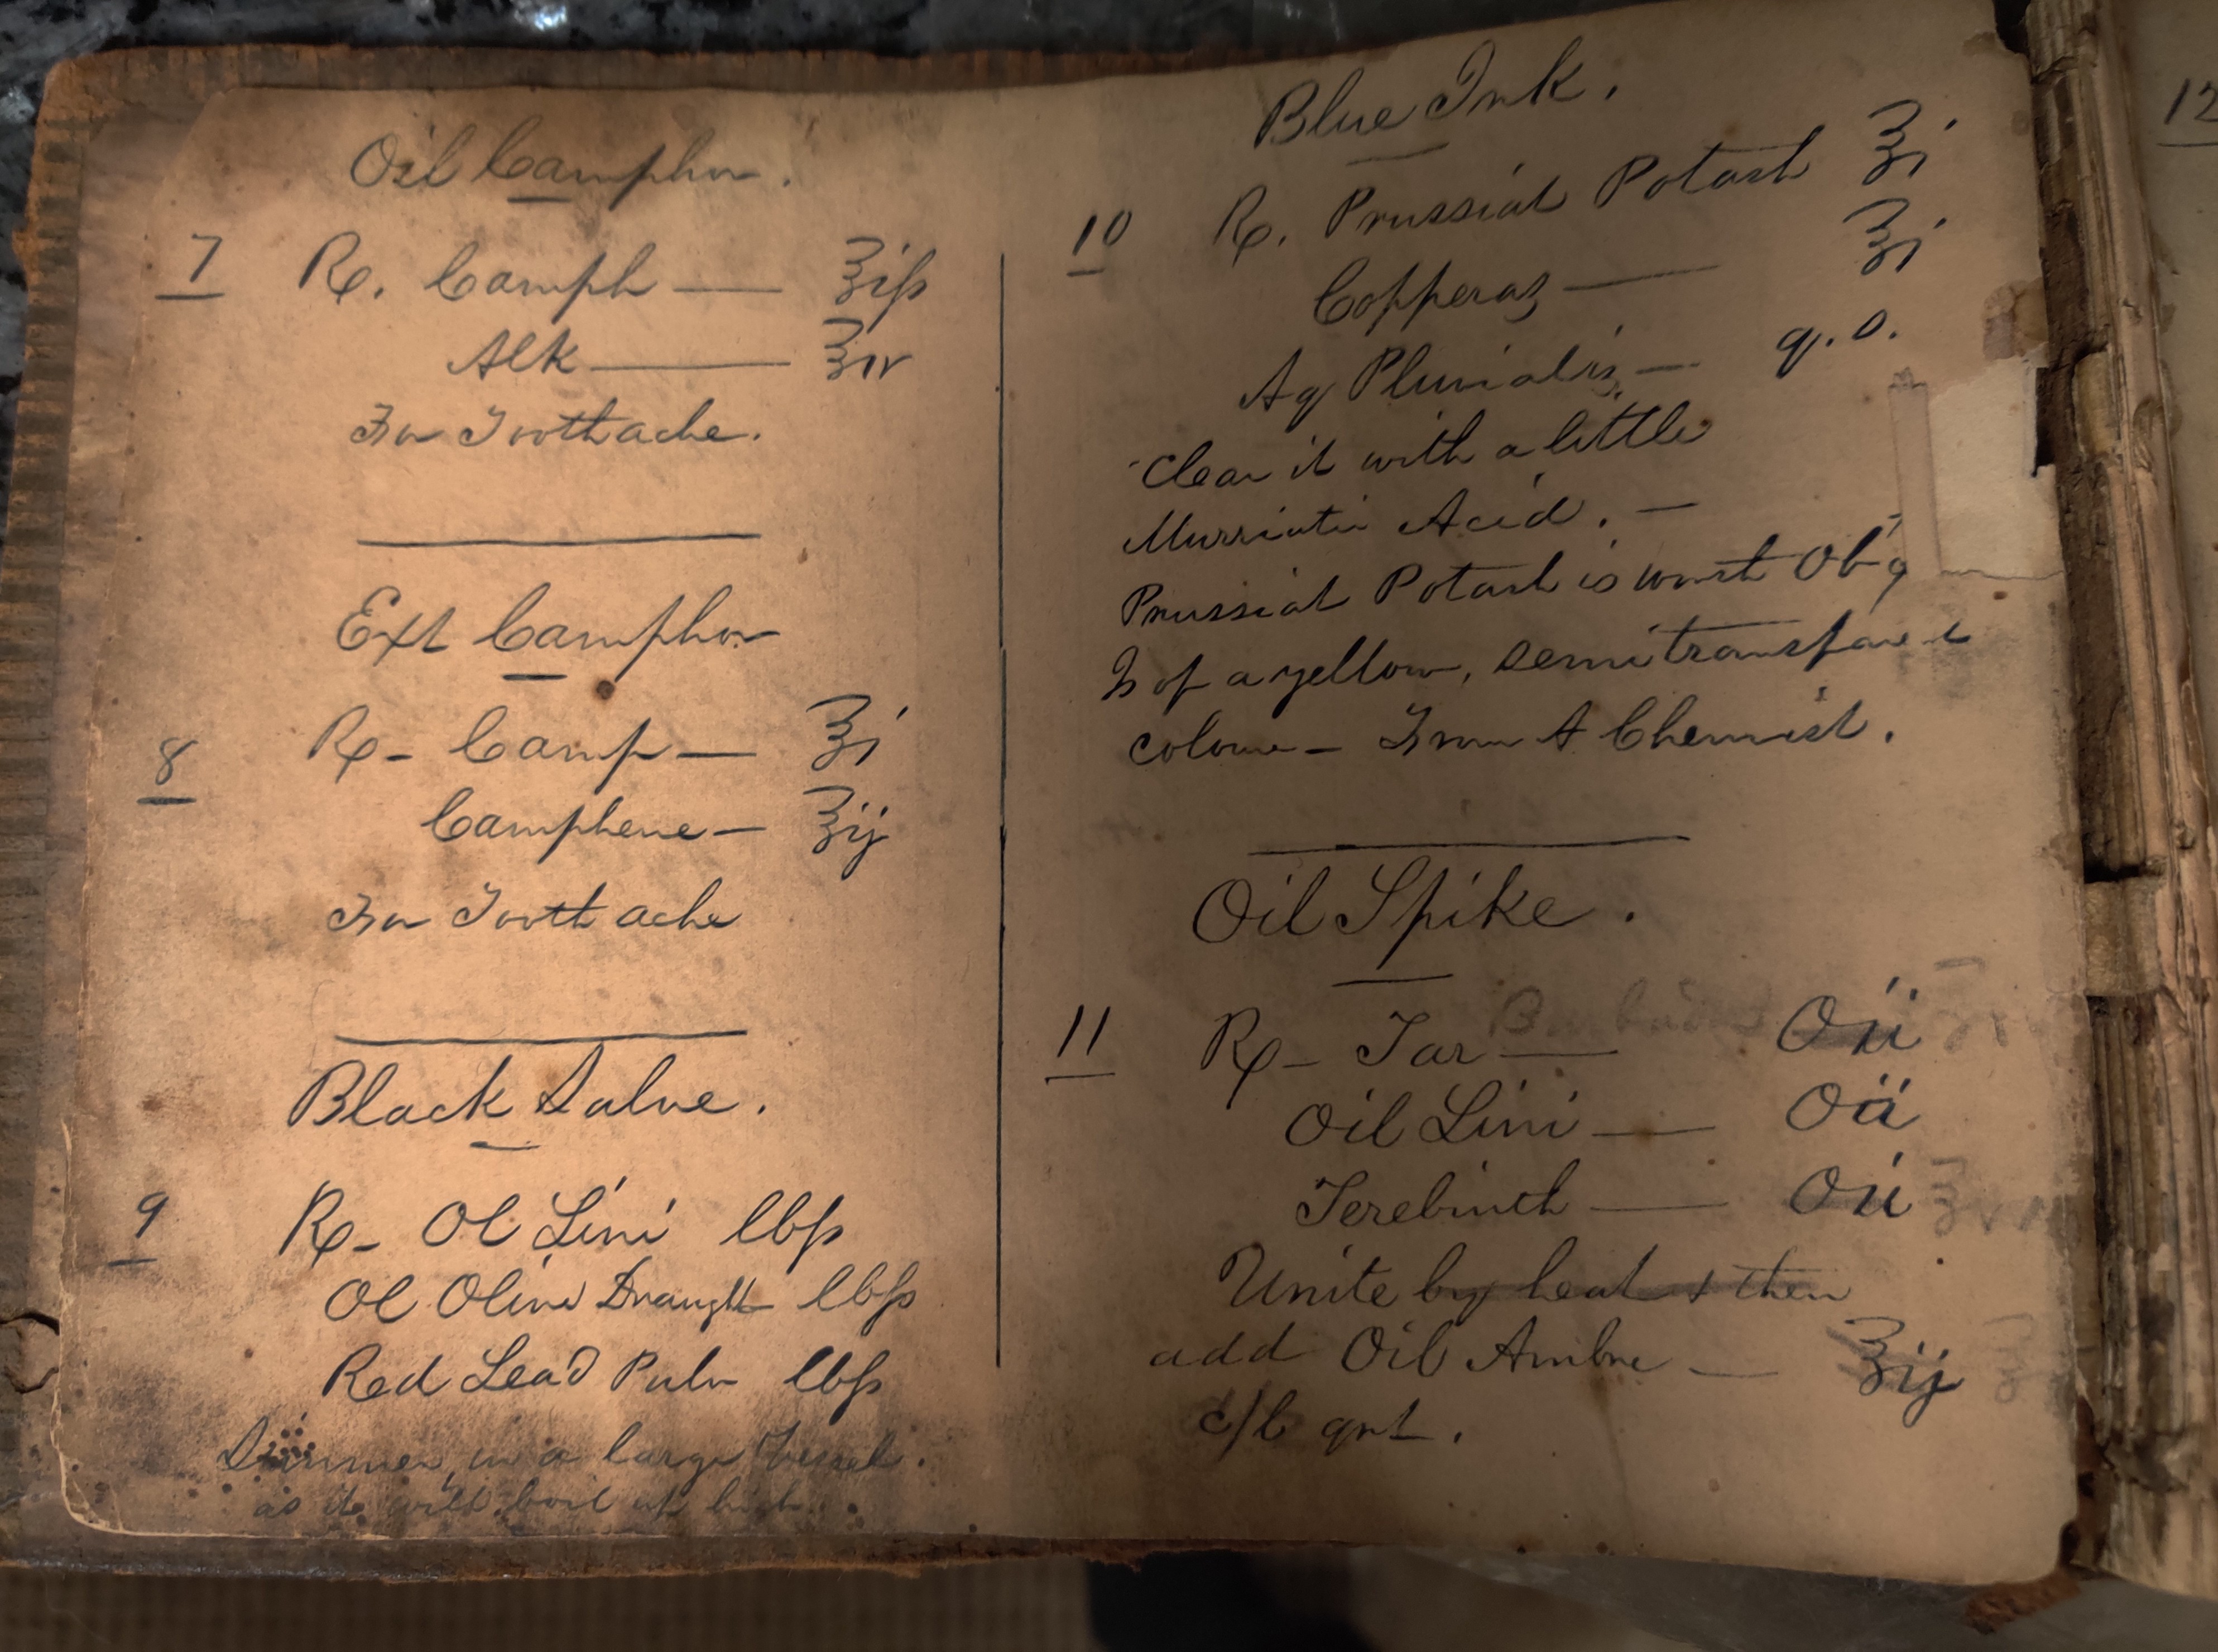 Oil Camphor.
7 Rx. Camph — ℥iſs
Alk — ℥iv
For Toothache.
Ext Camphor
8 Rx - Camp — ℥j
Camphene — ℥ij
For Tooth ache
Black Salve.
9 Rx - Ol Lini lbſs
Ol Olive Draught lbſs
Red Lead Pulv lbſs
Simmer, in a large Vessel.
as it will boil up high.
Blue Ink.
10 Rx. Prussiat Potash ℥j
Copperas — ℥j
Aq Pluvialis — q.s.
Clear it with a little
Murriatic Acid. —
Prussiat Potash is
Is of a yellow, semitransparent
colour — From A Chemist.
Oil Spike.
11 Rx - Tar — Oii
Oil Lini — Oii
Terebinth — Oii
Unite by heat & then
add Oil Ambre — ℥ij
qnt.
12